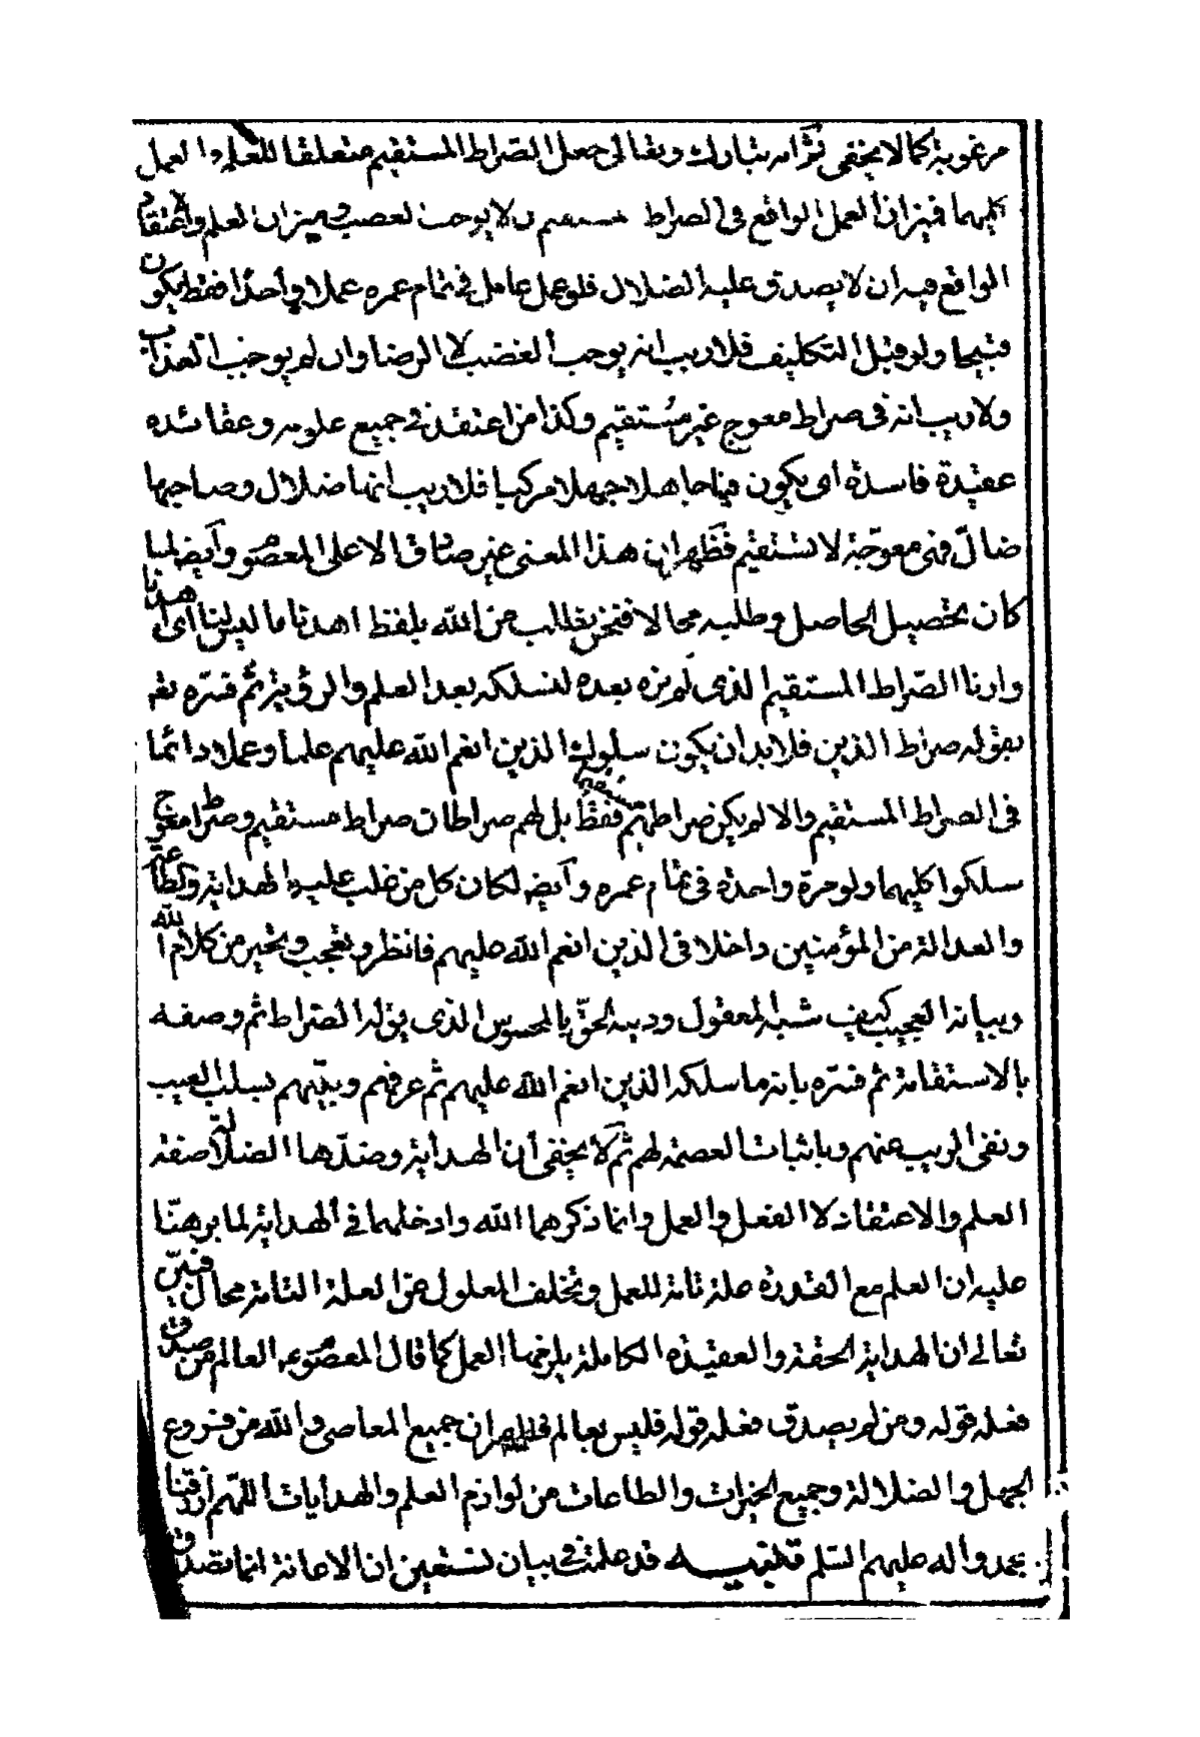 مرغوبة كما لا يخفى ثم انه تبارك وتعالى جعل الصراط المستقيم متعلقا للعلم والعمل
كليهما فميزان العمل الواقع فى الصراط المستقيم ان لا يوجب الغضب وميزان العلم والاعتقاد
الواقع فيه ان لا يصدق عليه الضلال فلو عمل عامل فى تمام عمره عملا واحدا فقط يكون
قبيحا ولو قبل التكليف فلا ريب انه يوجب الغضب لا الرضا وان لم يوجب العذاب
ولا ريب انه فى صراط معوج غير مستقيم وكذا من اعتقد فى جميع علومه وعقائده
عقيدة فاسدة اى يكون فيها جاهلا جهلا مركبا فلا ريب انها ضلال وصاحبها
ضالّ فهى معوجة لا تستقيم فظهر ان هذا المعنى غير صادق الا على المعصوم وأيضا لما
كان تحصيل الحاصل وطلبه محالا فنحن نطلب من الله بلفظ اهدنا ما ليس لنا أى اهدنا
وارنا الصراط المستقيم الذى لم نره بعده لنسلكه بعد العلم والرؤية ثم فسّره
بقوله صراط الذين فلا بد ان يكون سلوك الذين انعم الله عليهم علما وعملا دائما
فى الصراط المستقيم والا لم يكن صراطهم مستقيما فقط بل لهم صراطان صراط مستقيم وصراط معوج
سلكوا كليهما ولو مرة واحدة فى تمام عمره وأيضا لكان كل من غلب عليه الهداية والطاعة
والعدالة من المؤمنين داخلا فى الذين انعم الله عليهم فانظر وتعجب وتحير من كلام الله
وبيانه العجيب كيف شبه المعقول ودينه الحقّ بالمحسوس الذى يق له الصراط ثم وصفه
بالاستقامة ثم فسّره بانه ما سلكه الذين انعم الله عليهم ثم عرفهم وبيّنهم بسلب العيب
ونفى الريب عنهم وباثبات العصمة لهم ثم لا يخفى أن الهداية وضدّها الضلالة صفة
العلم والاعتقاد لا الفعل والعمل وانما ذكرهما الله وادخلهما فى الهداية لما برهنّا
عليه ان العلم مع القدرة علة تامة للعمل وتخلف المعلول عن العلة التامة محال فبيّن
تعالى ان الهداية الحقة والعقيدة الكاملة يلزمها العمل كما قال المعصوم ع العالم من صدق
فعله قوله ومن لم يصدق فعله قوله فليس بعالم فظهر ان جميع المعاصى والله من فروع
الجهل والضلالة وجميع الخيرات والطاعات من لوازم العلم والهدايات اللهم ارزقنا
بمحمد واله عليهم السلم تنبيه قد علمت فى بيان نستعين ان الاعانة انما تصدق